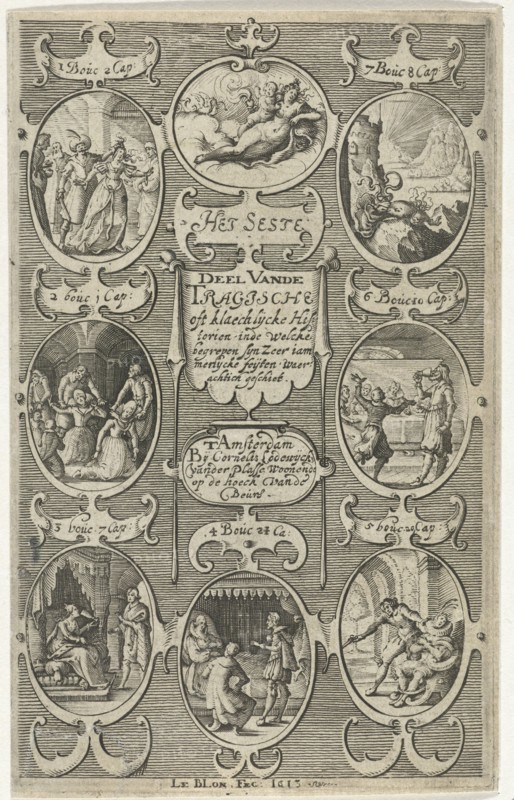 1 Boúc 2 Cap:
7 Boúc 8 Cap
HET SESTE
DEEL VANDE
TRAGISCHE
oft klaechlijcke His
torien inde Welcke
begrepen syn Zeer iam
merlijcke feijten Waer
achtich geschiet.
2 boúc 1 Cap:
6 Boúc 10 Cap:
T'Amsterdam
By Cornelis Lodewijck
vander Plasse Woonende
op de hoeck Vande
Beurs.
3 boúc. 7 Cap:
4 Boúc 24 Ca:
5 boúc 20 Cap:
LE BLON. FEC: 1613